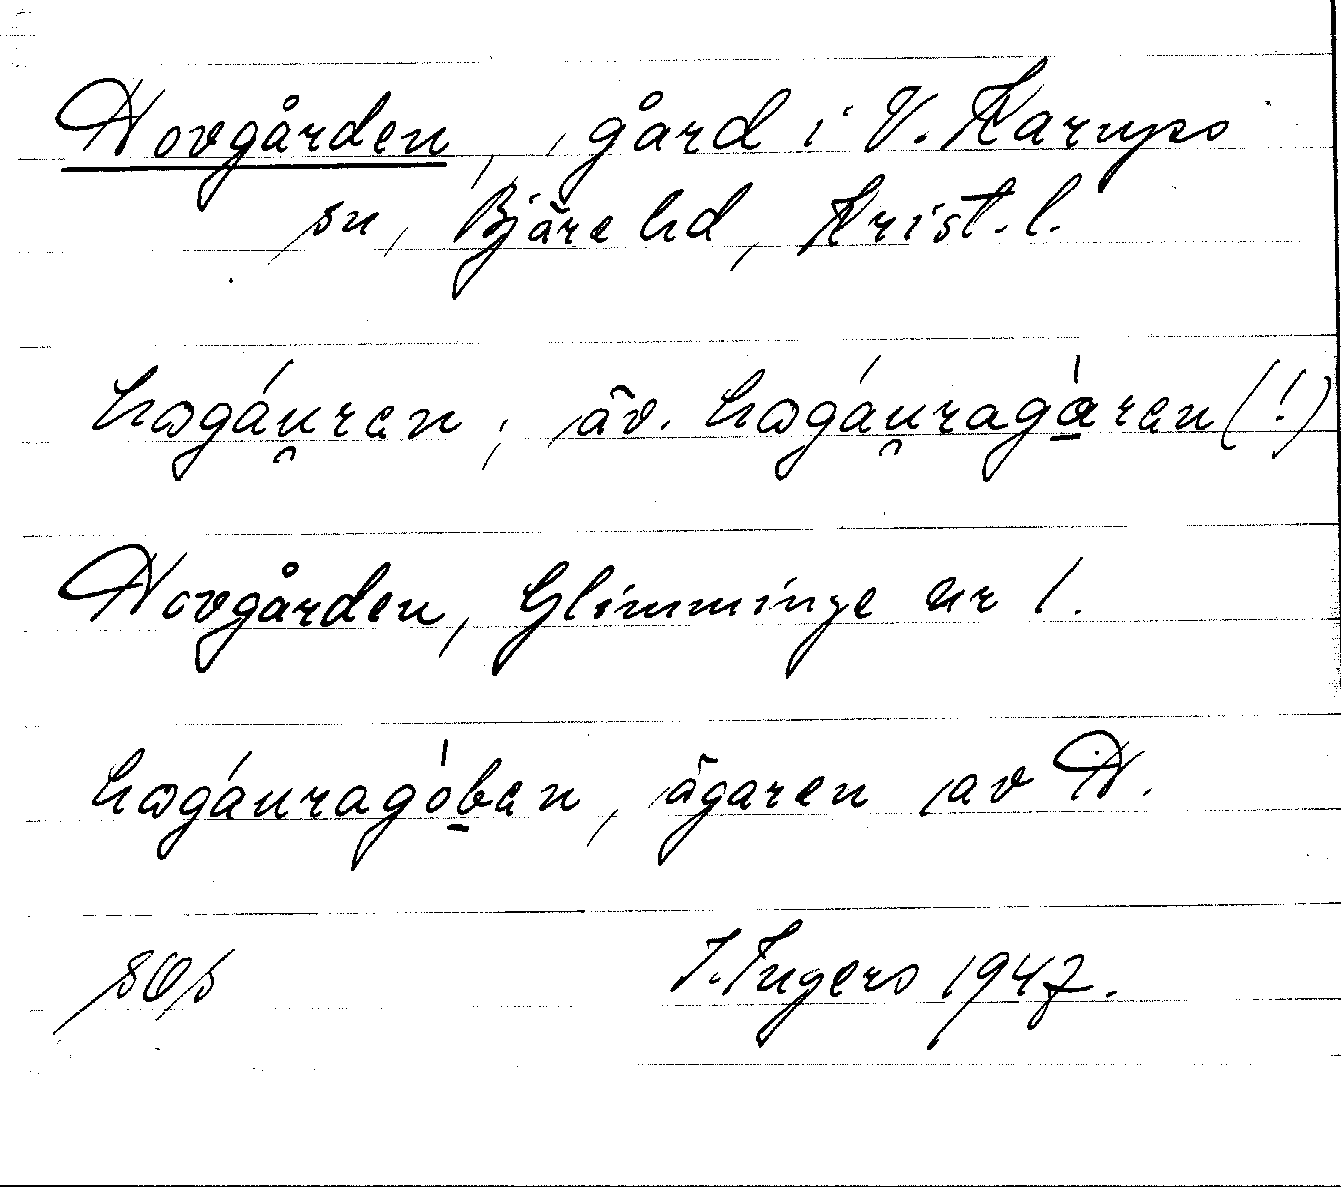 Hovgården, gård i V. Karups
sn, Bjäre hd, Krist. l.
hωgáu̯ren; äv. hωgáu̯ragà̱ren (!)
Hovgården, Glimminge nr 1.
hωgáuragò̱ben, ägaren av H.
sos
I. Ingers 1947.